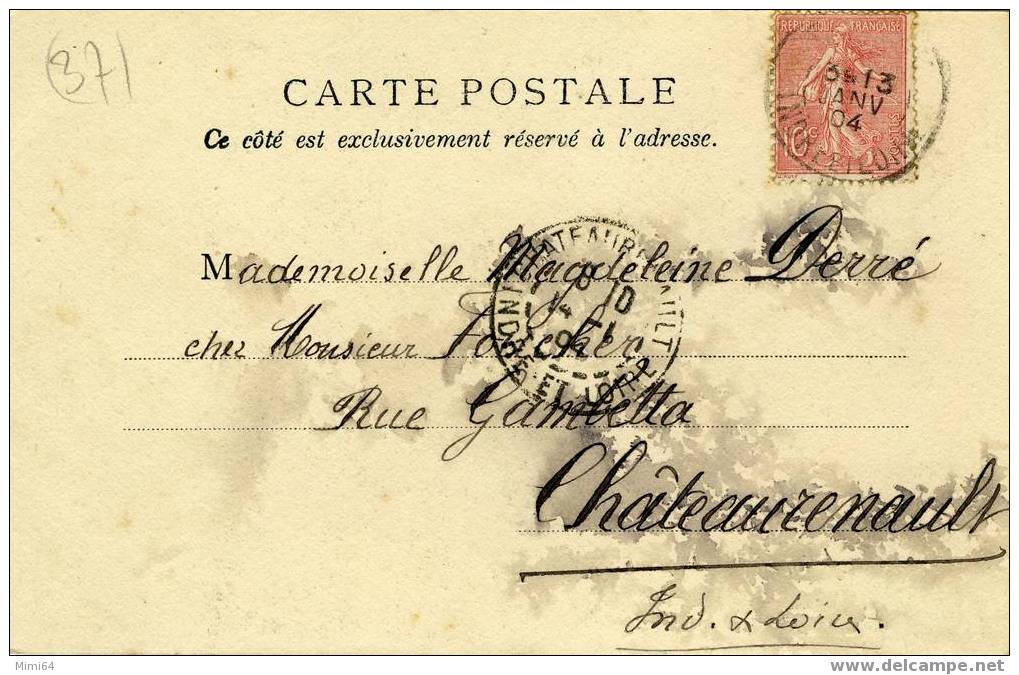 (37)
RÉPUBLIQUE FRANÇAISE
CARTE POSTALE
Ce côté est exclusivement réservé à l'adresse.
13
JANV
04
10c POSTES
INDRE ET LOIRE
CHATEAURENAULT
10
14
04
INDRE-ET-LOIRE
Mademoiselle Magdeleine Derré
chez Monsieur
Rue Gambetta
Châteaurenault
Ind. & Loire.
Mimi64
www.delcampe.net